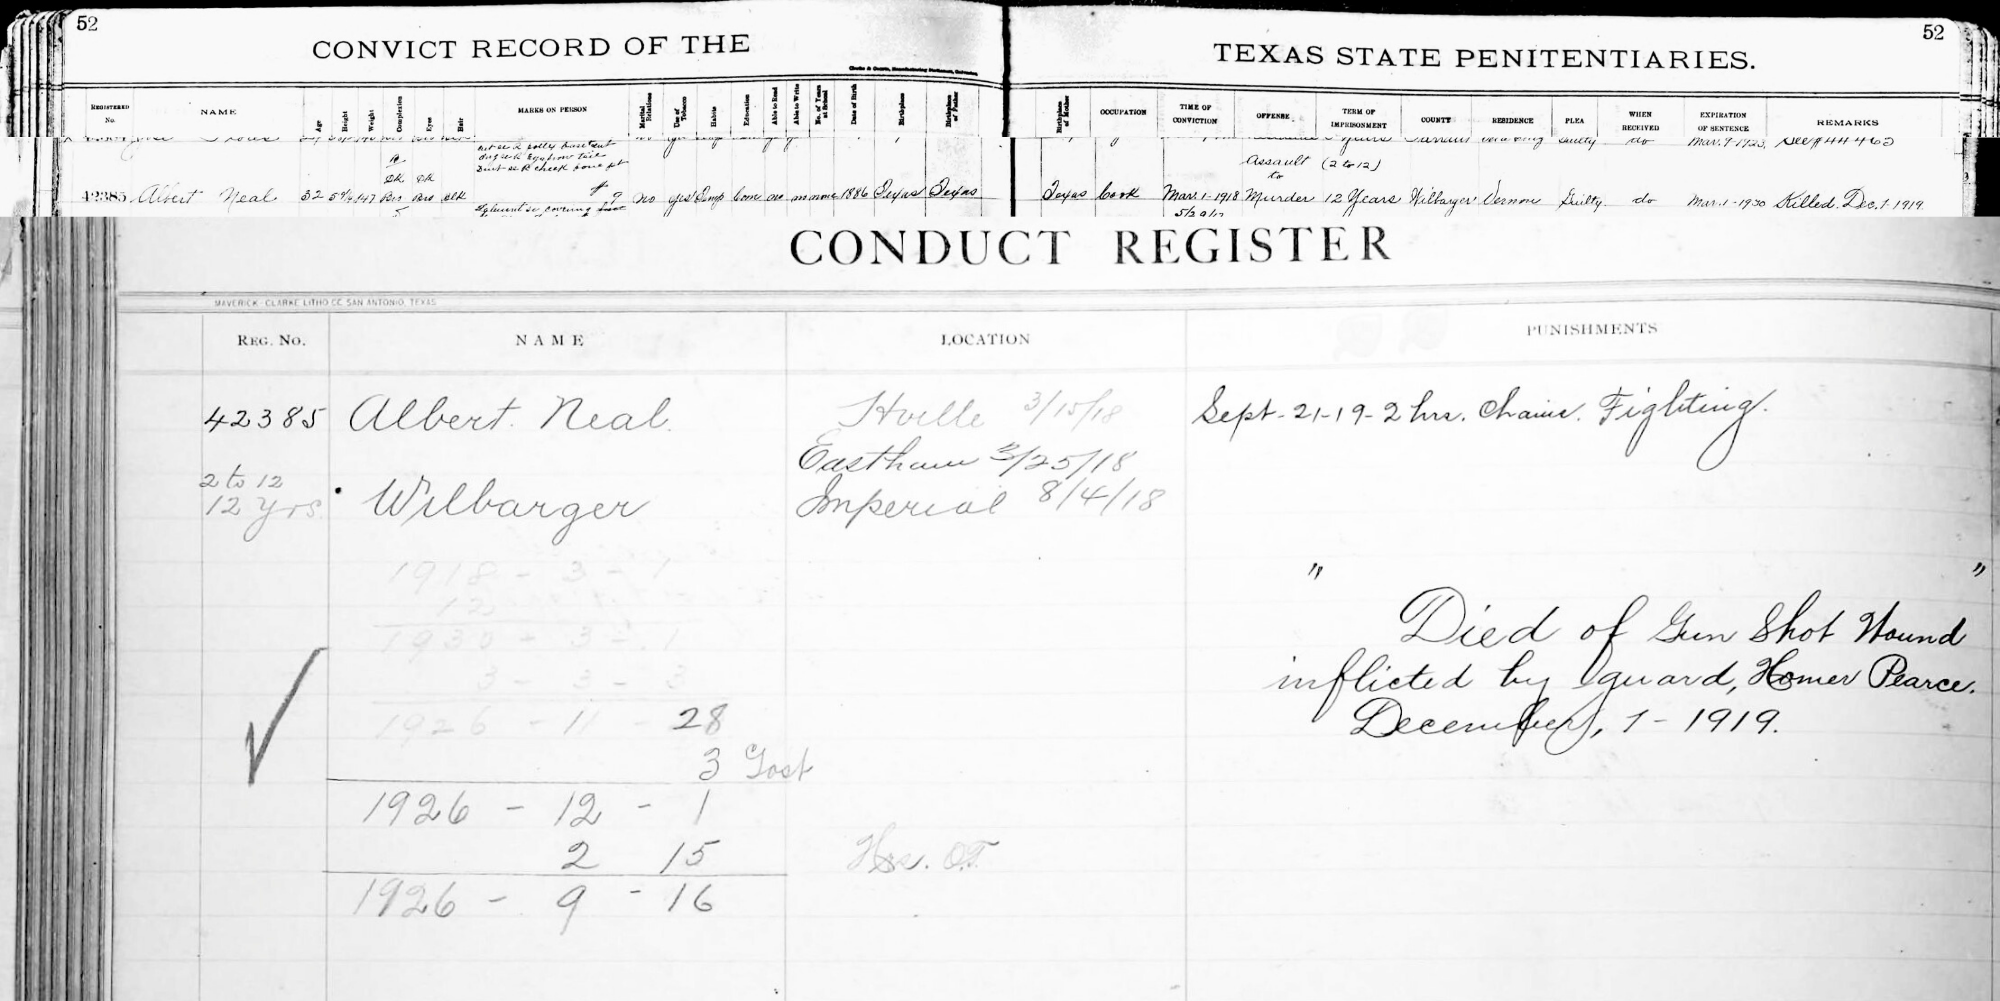 52
52
CONVICT RECORD OF THE
TEXAS STATE PENITENTIARIES.
REGISTERED No.
NAME
Age
Height
Weight
Complexion
Eyes
Hair
MARKS ON PERSON
Marital Relations
Use of Tobacco
Habits
Education
Able to Read
Able to Write
No. of Years at School
Date of Birth
Birthplace
Birthplace of Father
Birthplace of Mother
OCCUPATION
TIME OF CONVICTION
OFFENSE
TERM OF IMPRISONMENT
COUNTY
RESIDENCE
PLEA
WHEN RECEIVED
EXPIRATION OF SENTENCE
REMARKS
Guilty do Mar. 9-1923, See # 44463
Assault (2 to 12)
to
42385 Albert Neal 32 147 Bro Bro Blk No yes Temp no none 1886 Texas Texas Texas Cook Mar. 1-1918 Murder 12 Years Wilbarger Vernon Guilty do Mar. 1-1930 Killed. Dec. 1-1919.
CONDUCT REGISTER
MAVERICK-CLARKE LITHO CO. SAN ANTONIO, TEXAS
REG. NO. NAME LOCATION PUNISHMENTS
42385 Albert. Neal. Hville 3/15/18 Sept-21-19-2 hrs. Chains. Fighting.
Eastham 3/25/18
2 to 12
12 yrs. Wilbarger Imperial 8/4/18
1918 - 3 - 1
12
1930 - 3 - 1
3 - 3 - 3
1926 - 11 - 28
3 Lost
1926 - 12 - 1
2 15 Hrs. O.T.
1926 - 9 - 16
" "
Died of Gun Shot Wound
inflicted by guard, Homer Pearce.
December, 1-1919.